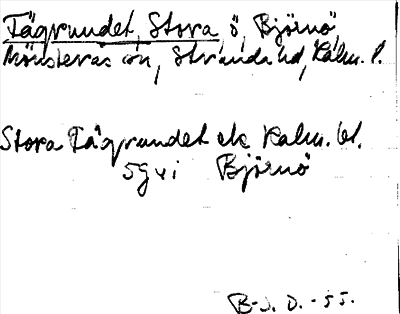 Tågrundet, Stora ö, Björnö,
Mönsterås sn, Stranda hd, Kalm. l.
Stora Tågrundet ek Kalm. bl.
5g vi Björnö
B-J. D. -55.